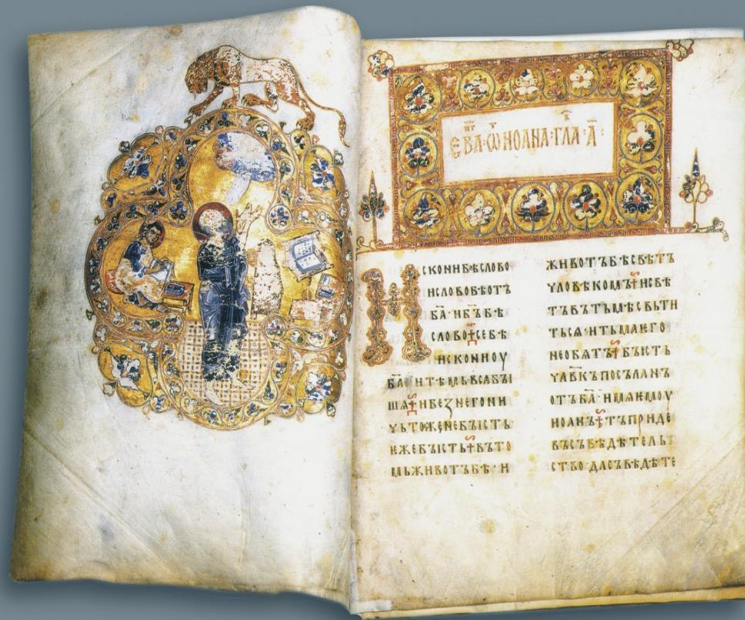 ЕВА·Ѿ ИОАНА·ГЛА·А҃·
ИСКОНИБѢСЛОВО
ИСЛОВОБѢОТЪ
БА҃·ИБ҃ЪБѢ
СЛОВО·СЕБѢ
ИСКОНИОУ
БА҃·ИТѢМЬВСАБЫ
ШѦ·ИБЕЗНЕГОНИ
ЧЬТОЖЕНЕБЪІСТЬ·
ЕЖЕБЪІСТЬ·ВЪТО
МЬЖИВОТЪБѢ·И
ЖИВОТЪБѢСВѢТЪ
ЧЛОВѢКОМЪ·ИСВѢ
ТЪВЪТЬМѢСВЬТИ
ТЬСѦ·ИТЬМАИЕГО
НЕОБѦТЪ·БЪІСТЬ
ЧЛ҃ВКЪПОСЪЛАНЪ
ОТЪБА҃·ИМѦЕМОУ
ИОАНЪ·ТЪПРИДЕ
ВЪСЪВѢДѢТЕЛЬ
СТВО·ДАСЪВѢДѢТЕ